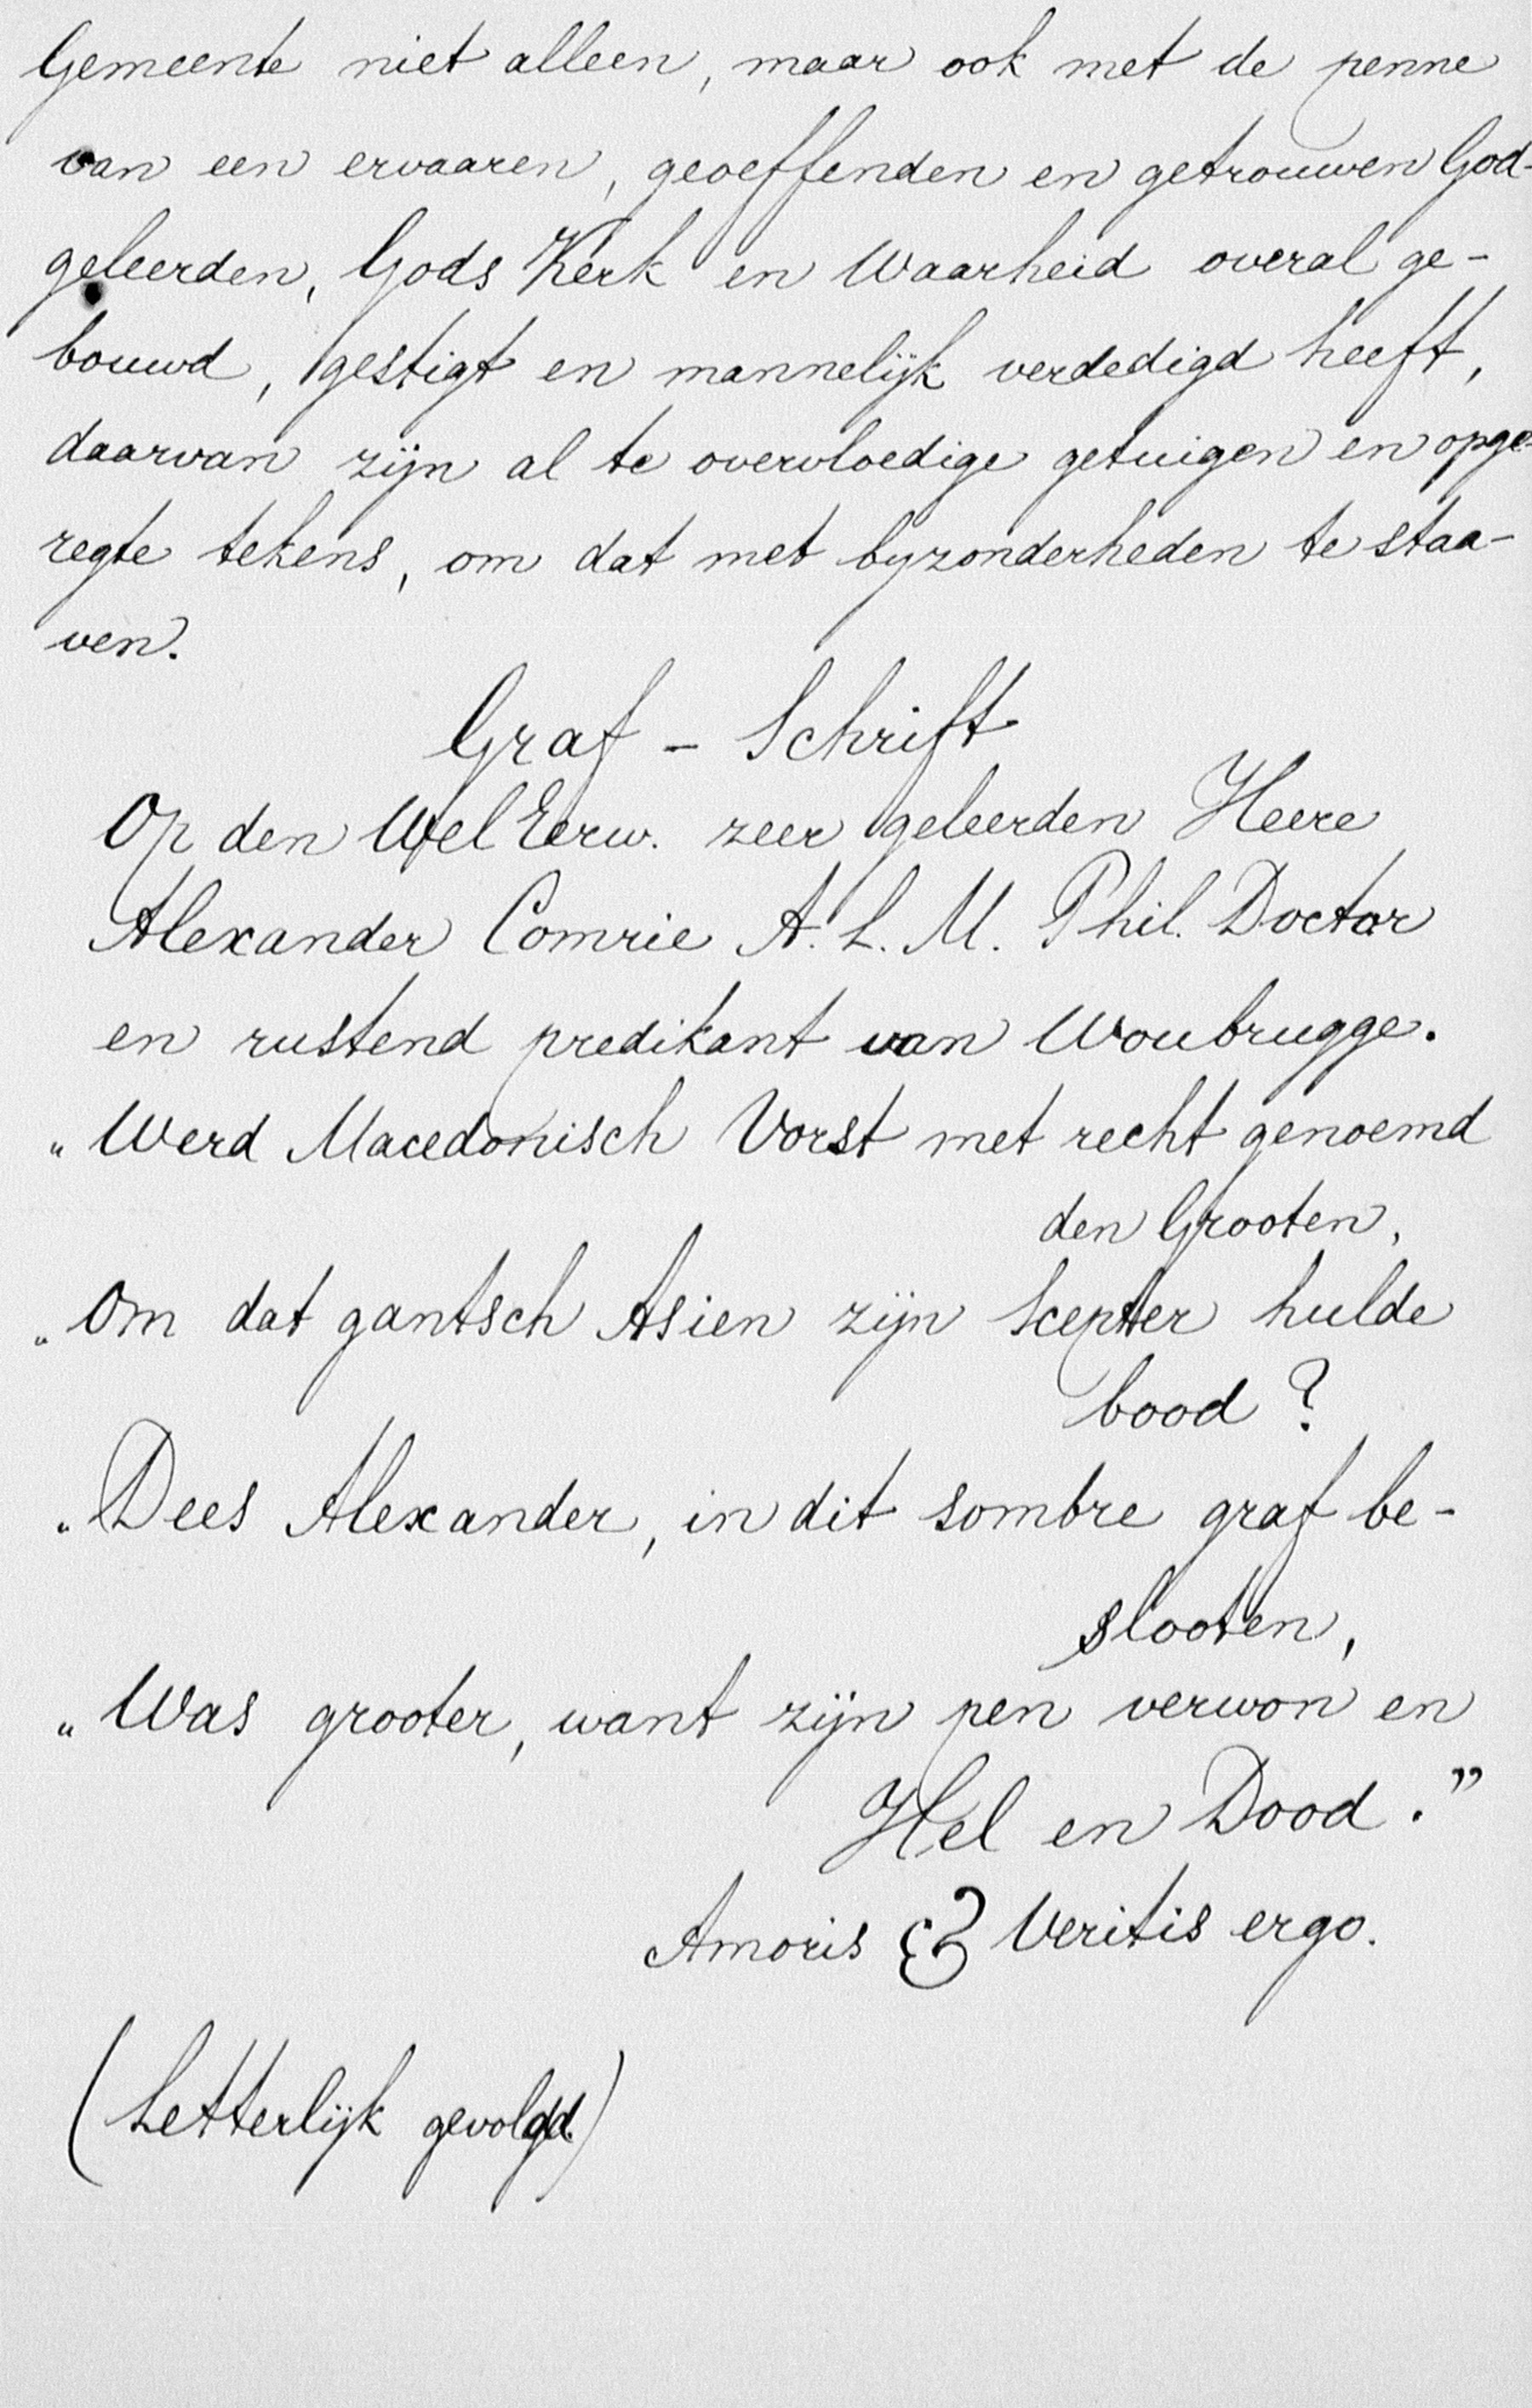 Gemeente niet alleen, maar ook met de penne
van een ervaaren, geoeffenden en getrouwen God-
geleerden, Gods Kerk en Waarheid overal ge-
bouwd, gestigt en mannelijk verdedigd heeft,
daarvan zijn al te overvloedige getuigen en opge-
regte tekens, om dat met byzonderheden te staa-
ven.
Graf - Schrift
Op den Wel Eerw. zeer geleerden Heere
Alexander Comrie A. L. M. Phil. Doctor
en rustend predikant van Woubrugge.
„Werd Macedonisch Vorst met recht genoemd
den Grooten,
„Om dat gantsch Asien zijn Scepter hulde
bood?
„Dees Alexander, in dit sombre graf be-
slooten,
„Was grooter, want zijn pen verwon en
Hel en Dood."
Amoris & Veritis ergo.
(Letterlijk gevolgd.)